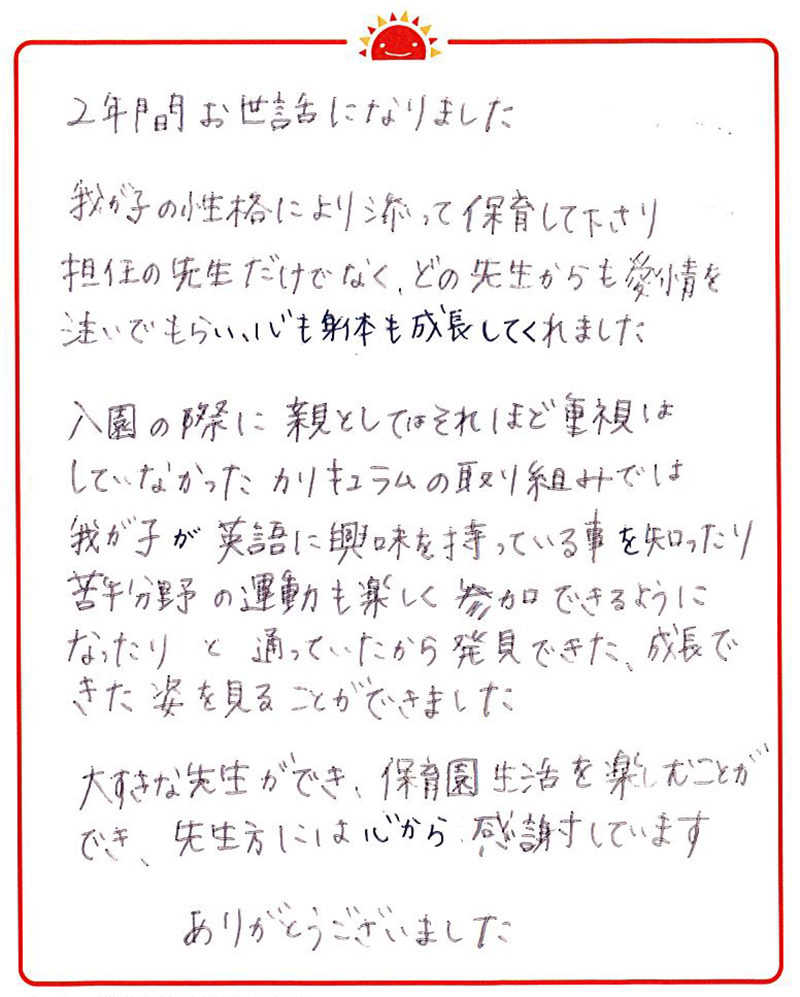 2年間お世話になりました
我が子の性格により添って保育して下さり
担任の先生だけでなく、どの先生からも愛情を
注いでもらい、心も身体も成長してくれました
入園の際に親としてはそれほど重視は
していなかったカリキュラムの取り組みでは
我が子が英語に興味を持っている事を知ったり
苦手分野の運動も楽しく参加できるように
なったりと通っていたから発見できた、成長で
きた姿を見ることができました
大すきな先生ができ、保育園生活を楽しむことが
でき、先生方には心から感謝しています
ありがとうございました